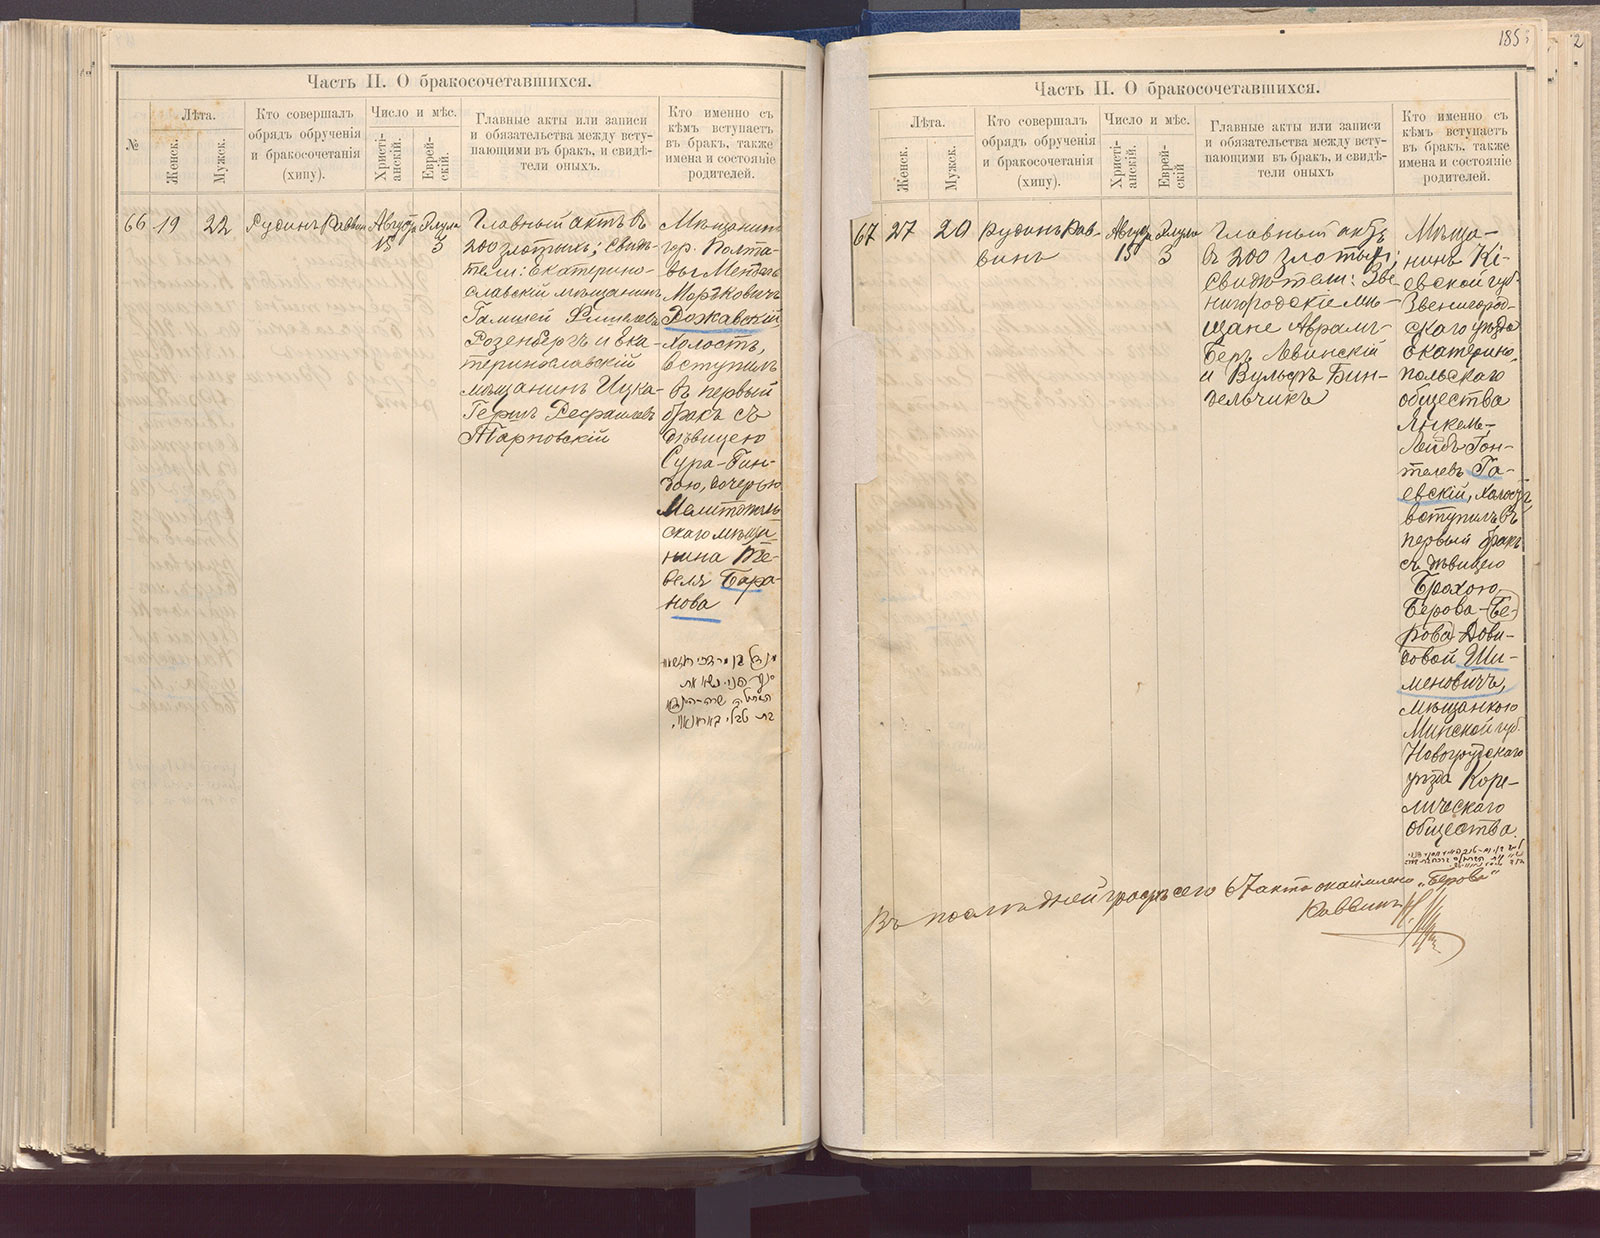 Часть II. О бракосочетавшихся.
№
Лѣта.
Женск.
Мужск.
Кто совершалъ
обрядъ обрученія
и бракосочетанія
(хипу).
Число и мѣс.
Христі-
анскій.
Еврей-
скій.
Главные акты или записи
и обязательства между всту-
пающими въ бракъ, и свидѣ-
тели оныхъ.
Кто именно съ
кѣмъ вступаетъ
въ бракъ, также
имена и состояніе
родителей.
66
19
22
Рудинъ Раввинъ
Августа
15
Элула
3
Главный актъ в
200 злотыхъ; Свидѣ-
тели: Екатерино-
славскій мѣщанинъ
Розенбергъ и Ека-
теринославскій
мѣщанинъ Ицка-
Гершъ
Тарповскій
Мѣщанинъ
гор. Полта-
вы Мендель
Мордковичъ
Рожавскій,
Холостъ,
вступилъ
въ первый
бракъ съ
дѣвицею
Сура-Гин-
дою, дочерью
Мелитополь
скаго мѣща-
нина Те-
веля Бара-
нова
Часть II. О бракосочетавшихся.
Лѣта.
Женск.
Мужск.
Кто совершалъ
обрядъ обрученія
и бракосочетанія
(хипу).
Число и мѣс.
Христі-
анскій.
Еврей-
скій
Главные акты или записи
и обязательства между всту-
пающими въ бракъ, и свидѣ-
тели оныхъ
Кто именно съ
кѣмъ вступаетъ
въ бракъ, также
имена и состояніе
родителей.
67
27
20
Рудинъ Рав-
винъ
Августа
15
Элула
3
Главный актъ
въ 200 злотыхъ;
Свидѣтели: Зве
нигородскіе мѣ-
щане Аврамъ-
Беръ Левинскій
и Вульфъ Бин-
дельчикъ
Мѣща-
нинъ Кі-
евской губ.
Звенигород-
скаго уѣзда
Екатерино-
польскаго
общества
Янкель-
Лейбъ Гон-
телевъ Га-
евскій, холостъ,
вступилъ въ
первый бракъ
съ дѣвицею
Брохою,
Берова-Бе-
рова Дови-
довой Ши-
меновичъ,
мѣщанкою
Минской губ.
Новогрудскаго
уѣзда Коре-
личскаго
общества.
Въ послѣдней графѣ сего 67 акта окаймлено „Берова“
Раввинъ